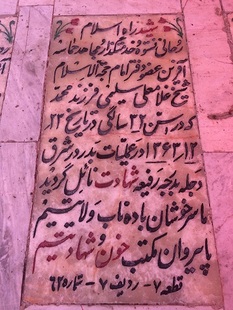 شهید راه اسلام
روحانی نستوه خدمتگذار مجاهد حماسه
آفرین مخلص و فقر امام حجة الاسلام
شیخ غلامعلی سلیمی فرزند محمد
که در سن ۲۲ سالگی در تاریخ ۲۲
۱۳۶۳/۱۲ در عملیات بدر در شرق
دجله بدرجه رفیعه شهادت نائل گردید
ما سرخوشان باده ناب ولایتیم
پا پیروان مکتب خون و شهادتیم
قطعه ۷ - ردیف ۷ - شماره ۶۲